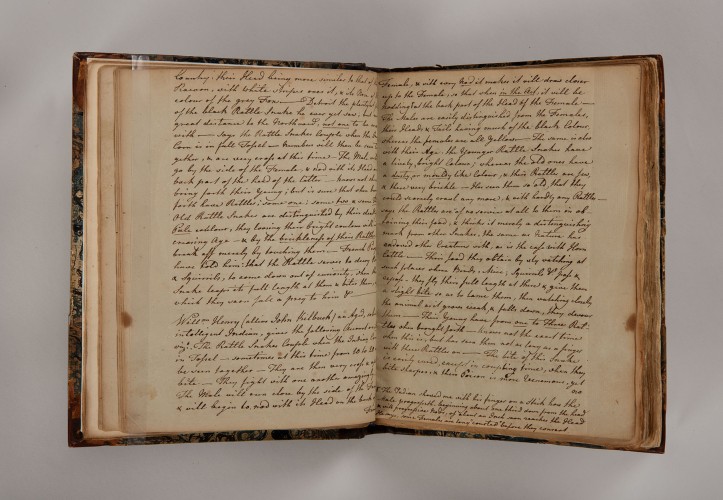 Country; their Head being more similar to that of
Racoon, with white stripes over it, & the
colour of the grey Fox — Detroit the plentiful
of the black Rattle Snake he ever yet saw, but
great distance to the Northward, not one to be
with — says the Rattle Snakes Couple when the
Corn is in full Tassel — number will then be seen
gether, & are very cross at this time. The Male will
go by the side of the Female, & nod with its Head
back part of the head of the latter — knows not
bring forth their Young; but is sure that when
forth have Rattles; some one; some two
Old Rattle Snakes are distinguished by their
Pale colour, they loosing their bright colour with
creasing Age — & by the brickleness of their Rattles
break off merely by touching them — French
lines told him that the Rattle serves to decoy
& Squirrels, to come down out of curiosity, when the
Snake leaps its full length at them & bites them
which they soon fall a prey to him &c
Willm. Henry (alias John Kilbuck) an Aged,
intelligent Indian, gives the following Account
vizt. The Rattle Snakes Couple when the Indian Corn
in Tassel — sometimes at this time from 10 to 20
be seen together — They are then very cross &
bite — They fight with one another
The Male will come close by the side of the
& will begin to nod with its Head on the back
Female, & with every nod it makes it will draw closer
up to the Female, so that when in the Act, it will be
nodding at the back part of the Head of the Female —
The Males are easily distinguished from the Females,
their Heads & Tails having much of the black Colour,
whereas the females are all Yellow — The same is also
with their Age. the Younger Rattle Snakes have
a lively, bright Colour; whereas the old ones have
a dusty or mouldy like Colour, & their Rattles are few,
& these very brickle — Has seen them so old that they
could scarcely crawl any more, & with hardly any Rattles —
says the Rattles are of no service at all to them in ob-
taining their food, & thinks it merely a distinguishing
mark from other Snakes, the same as Nature has
endowed other Creatures with, as is the case with Horn
Cattle — Their food they obtain by sly watching at
such places where Birds, Mice, Squirrels &c pass &
repass. they fly their full length at them & give them
a slight bite so as to lame them, then watching closely
the animal will grow weak & falls down, they devour
them — Their Young have from one to three Rat-
tles when brought forth — knows not the exact time
when this is, but has seen them not as long as a finger
with three Rattles on — The bite of this Snake
is easily cured, except in coupling time, when they
bite sharper, & their Poison is more Venomous, yet
The Indian showed me with his finger on a stick how the
Male progresseth, beginning about one third down from the head
& with progressive Nods, of about an Inch, soon reaches the Head